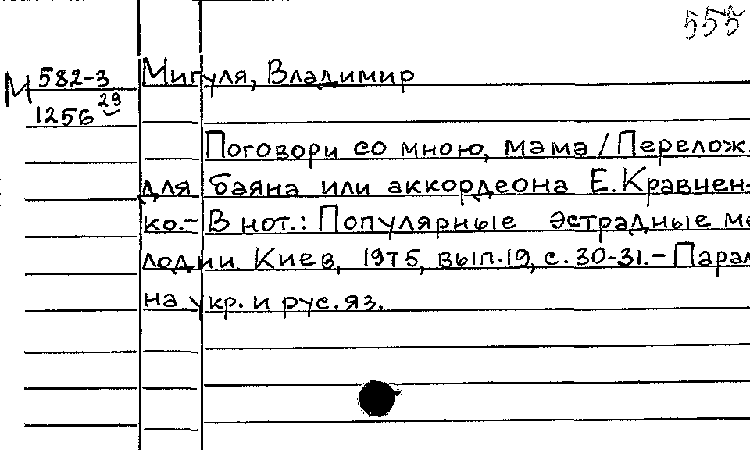 555
М 582-3
1256 29
Мигуля, Владимир
Поговори со мною, мама / Перелож.
для баяна или аккордеона Е. Кравчен-
ко.- В нот.: Популярные эстрадные ме
лодии Киев, 1975, вып.19, с. 30-31.- Парал
на укр. и рус. яз.